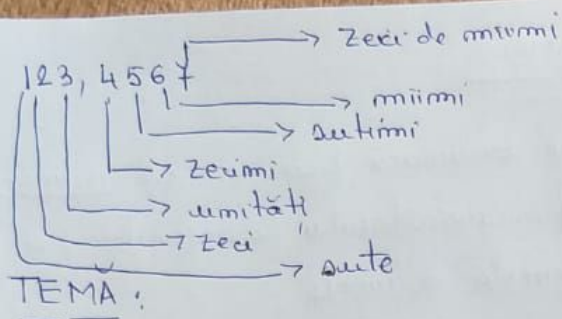 zeci de miimi
123,4567
miimi
sutimi
zecimi
unități
zeci
sute
TEMĂ: